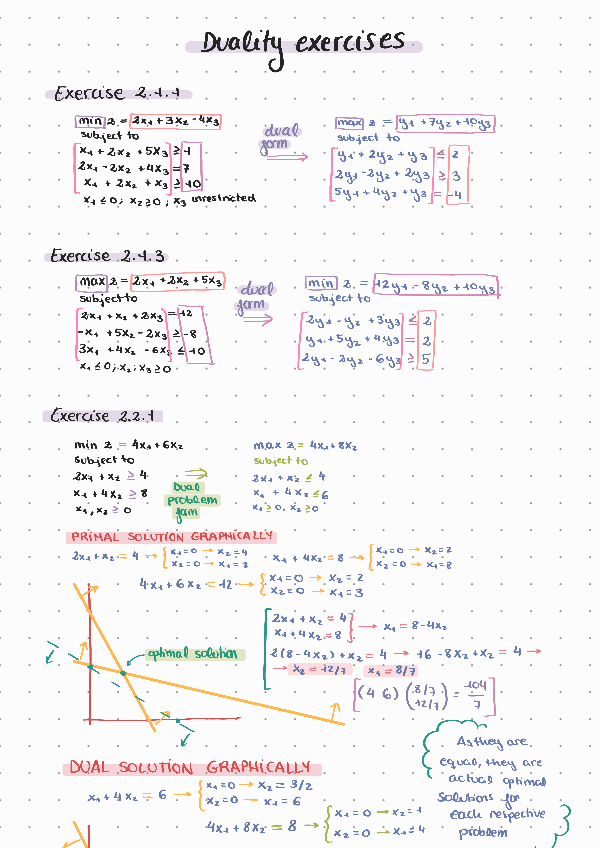 Duality exercises
Exercise 2.1.1
min z = 2x1 + 3x2 - 4x3
subject to
x1 + 2x2 + 5x3 ≥ 1
2x1 - 2x2 + 4x3 = 7
x1 + 2x2 + x3 ≥ 10
x1 ≤ 0; x2 ≥ 0; x3 unrestricted
dual
form
max z = y1 + 7y2 + 10y3
subject to
y1 + 2y2 + y3 ≤ 2
2y1 - 2y2 + 2y3 ≥ 3
5y1 + 4y2 + y3 = -4
Exercise 2.1.3
max z = 2x1 + 2x2 + 5x3
subject to
2x1 + x2 + 2x3 = 12
-x1 + 5x2 - 2x3 ≥ -8
3x1 + 4x2 - 6x3 ≤ 10
x1 ≤ 0; x2; x3 ≥ 0
dual
form
min z = 12y1 - 8y2 + 10y3
subject to
2y1 - y2 + 3y3 ≤ 2
y1 + 5y2 + 4y3 = 2
2y1 - 2y2 - 6y3 ≥ 5
Exercise 2.2.1
min z = 4x1 + 6x2
subject to
2x1 + x2 ≥ 4
x1 + 4x2 ≥ 8
x1, x2 ≥ 0
Dual
problem
form
max z = 4x1 + 8x2
subject to
2x1 + x2 ≤ 4
x1 + 4x2 ≤ 6
x1 ≥ 0, x2 ≥ 0
PRIMAL SOLUTION GRAPHICALLY
2x1 + x2 = 4 → { x1 = 0 → x2 = 4
x2 = 0 → x1 = 2
x1 + 4x2 = 8 → { x1 = 0 → x2 = 2
x2 = 0 → x1 = 8
4x1 + 6x2 = 12 → { x1 = 0 → x2 = 2
x2 = 0 → x1 = 3
optimal solution
2x1 + x2 = 4
x1 + 4x2 = 8 } → x1 = 8 - 4x2
2(8 - 4x2) + x2 = 4 → 16 - 8x2 + x2 = 4 →
→ x2 = 12/7 x1 = 8/7
(4 6) (8/7 12/7) = 104/7
As they are
equal, they are
actual optimal
solutions for
each respective
problem
DUAL SOLUTION GRAPHICALLY
x1 + 4x2 = 6 → { x1 = 0 → x2 = 3/2
x2 = 0 → x1 = 6
4x1 + 8x2 = 8 → { x1 = 0 → x2 = 1
x2 = 0 → x1 = 4